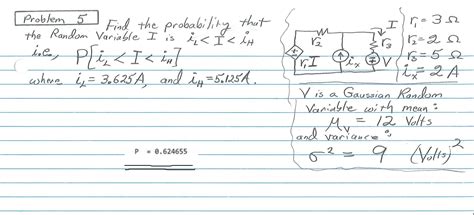 Problem 5 Find the probability that
the Random Variable I is i_L < I < i_H
i.e., P[i_L < I < i_H]
where i_L = 3.625A, and i_H = 5.125A.
P = 0.624655
r₂
I
r₁I
i_x
r₃
V
r₁ = 3 Ω
r₂ = 2 Ω
r₃ = 5 Ω
i_x = 2 A
V is a Gaussian Random
Variable with mean:
μ_V = 12 Volts
and variance:
σ² = 9 (Volts)²